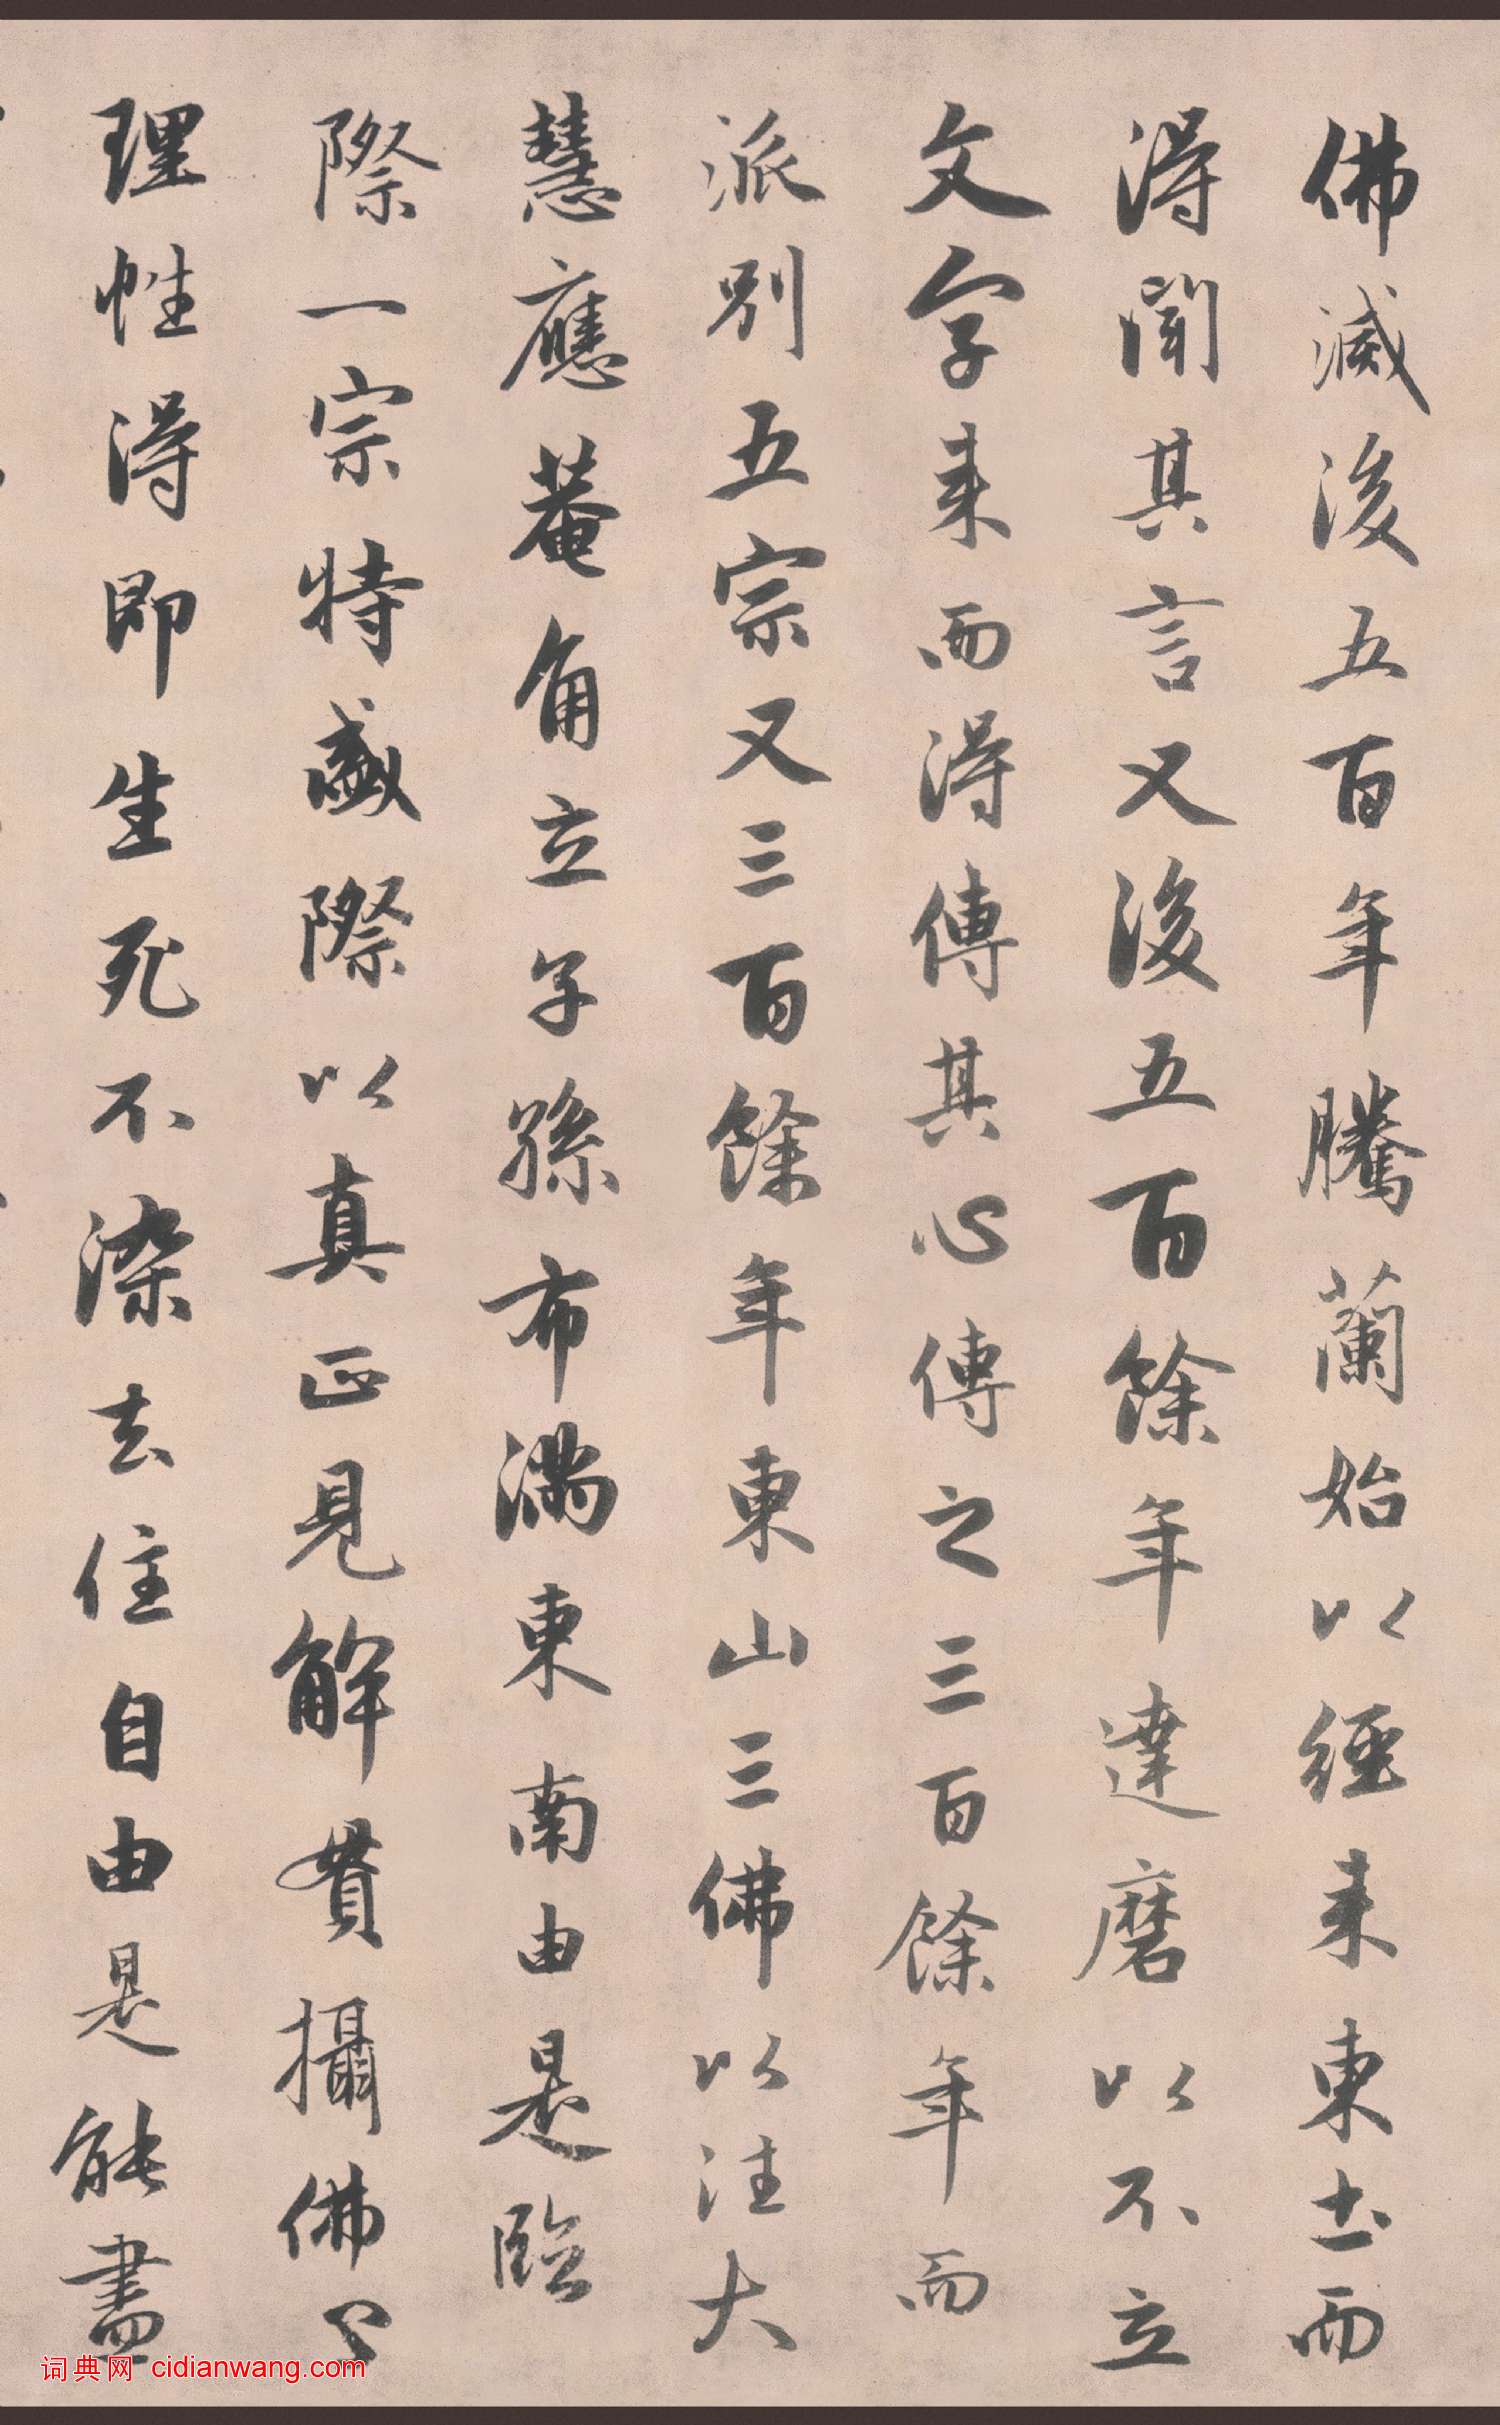 佛滅後五百年騰蘭始以經来東土而
得聞其言又後五百餘年達磨以不立
文字来而得傳其心傳之三百餘年而
派別五宗又三百餘年東山三佛以法大
慧應菴角立子孫布滿東南由是臨
際一宗特盛際以真正見解貫攝佛〻
理性得即生死不染去住自由是能盡
词典网 cidianwang.com